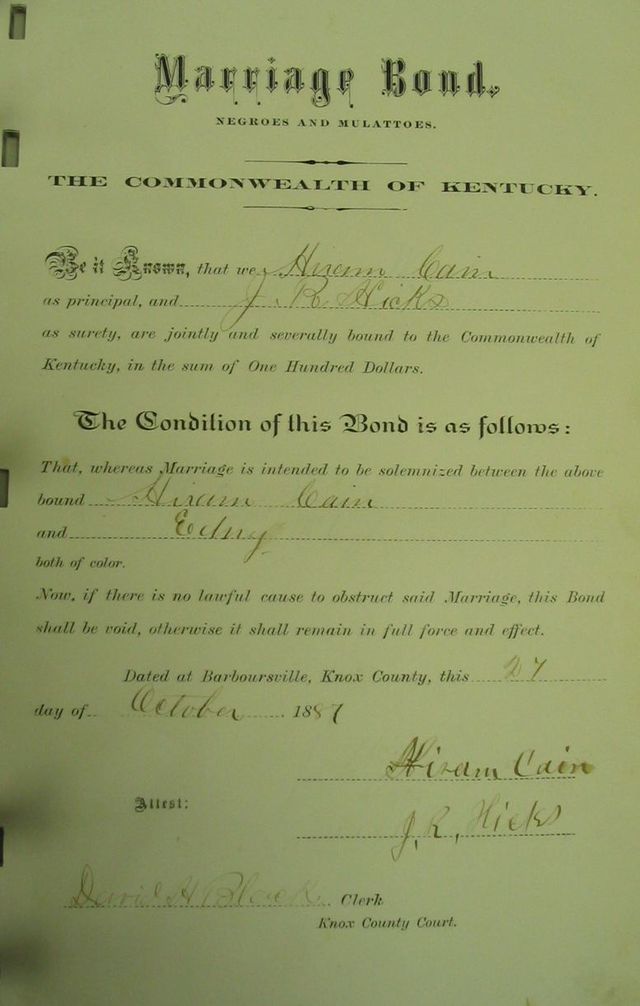 Marriage Bond.
NEGROES AND MULATTOES.
THE COMMONWEALTH OF KENTUCKY.
Be it Known, that we, Hiram Cain
as principal, and J. R. Hicks
as surety, are jointly and severally bound to the Commonwealth of
Kentucky, in the sum of One Hundred Dollars.
The Condition of this Bond is as follows:
That, whereas Marriage is intended to be solemnized between the above
bound Hiram Cain
and Edny
both of color.
Now, if there is no lawful cause to obstruct said Marriage, this Bond
shall be void, otherwise it shall remain in full force and effect.
Dated at Barboursville, Knox County, this 27
day of October 1887
Hiram Cain
Attest:
J. R. Hicks
David H Black Clerk
Knox County Court.